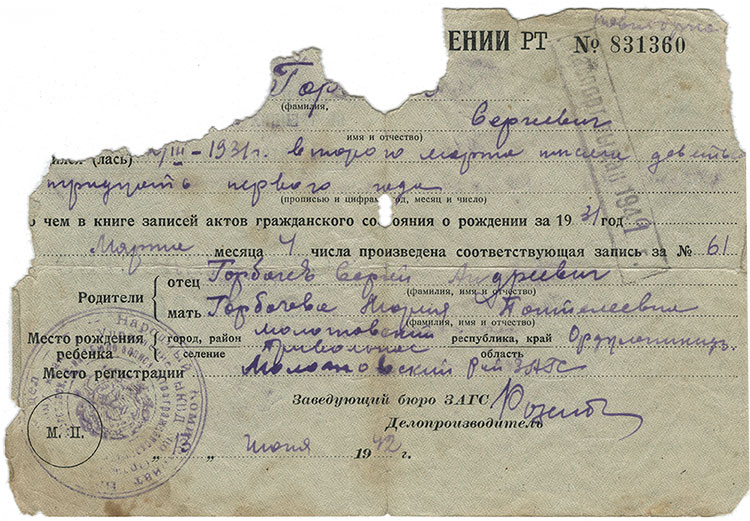 ЕНИИ РТ № 831360
Гор
(фамилия,
Сергиевич
имя и отчество)
(лась) III-1931 г. второго марта тысяча девять
тридцать первого года
(прописью и цифрам од, месяц и число)
о чем в книге записей актов гражданского состояния о рождении за 1931 год.
Марта месяца 4 числа произведена соответствующая запись за № 61
Родители
отец Горбачев Сергей Андреевич
(фамилия, имя и отчество)
мать Горбачева Мария Пантелеевна
(фамилия, имя и отчество)
Место рождения ребенка
город, район Молотовский республика, край Орджоникидз.
селение Привольное область
Место регистрации Молотовский Рай ЗАГС
Заведующий бюро ЗАГС
Делопроизводитель
М. П.
" " Июня 1942 г.